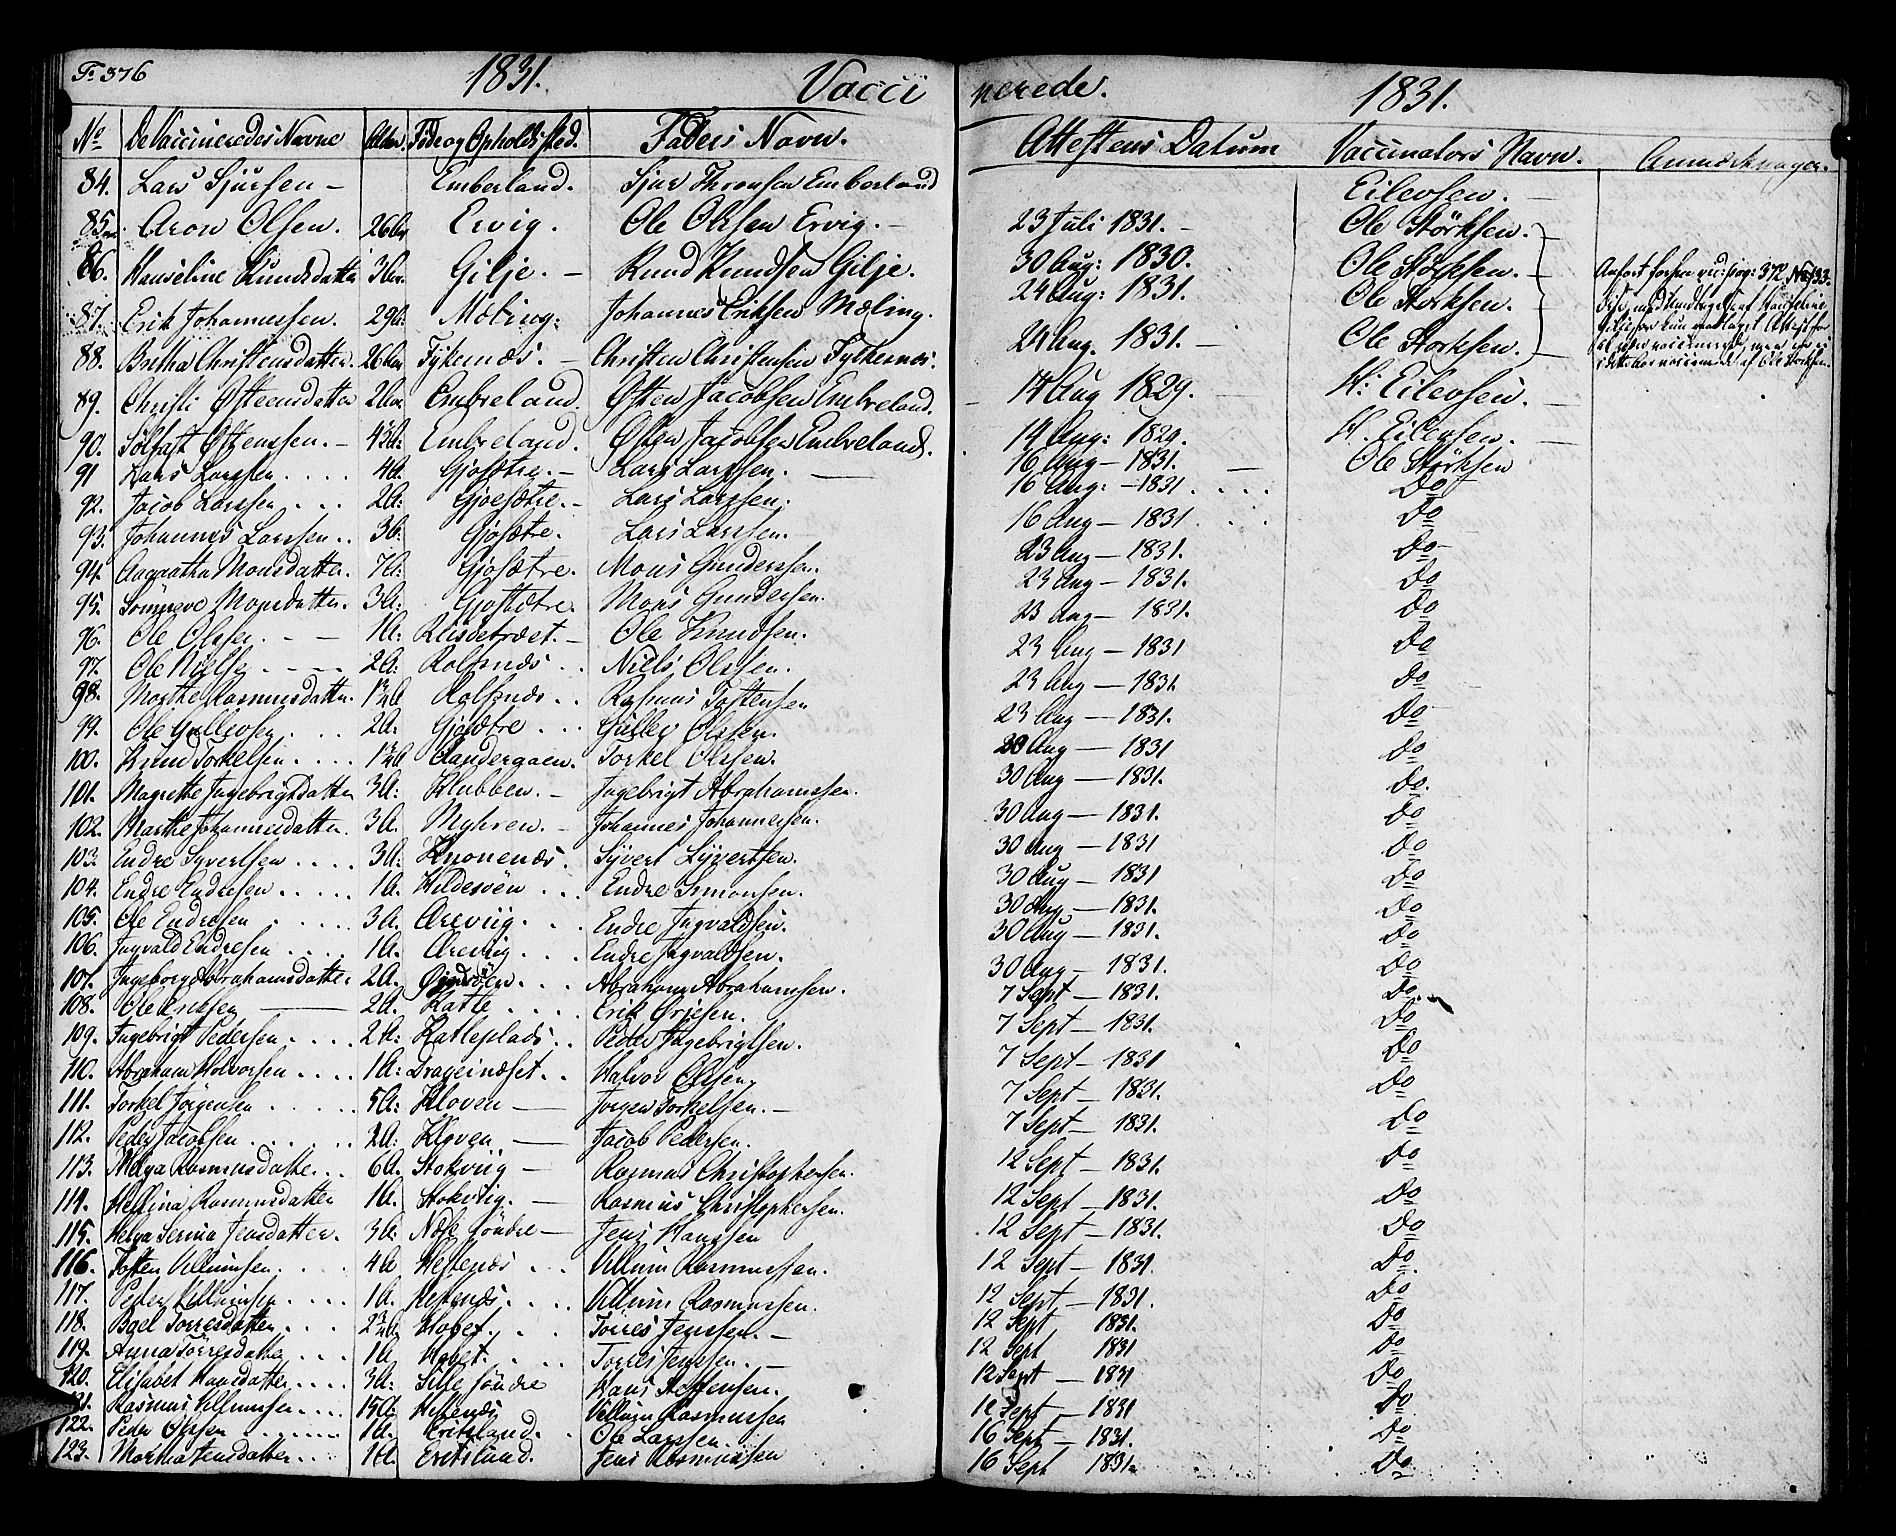 F. 376 1831. Vaccinerede. 1831.
No De Vaccineredes Navne Alder. Føde og Opholdssted. Faders Navn. Attestens Datum Vaccinators Navn. Anmærkninger.
84. Lars Sjursen - Emberland. Sjur Thronsen Emberland Eilevsen.
85. Aron Olsen. 26 Ervig. Ole Olsen Ervig. 23 Juli 1831. Ole Störksen.
86. Hanseline Knudsdatter 3 Gilje. Knud Knudsen Gilje. 30 Aug: 1830. Ole Störksen. Anført forhen pag: 372 No 133.
87. Erik Johannessen. 29 Mæling. Johannes Eriksen Mæling. 24 Aug: 1831. Ole Storksen.
88. Bertha Christensdatter. 26 Fykenæs. Christen Christensen Fykenæs. 24 Aug. 1831. Ole Storksen.
89. Christi Østensdatter 2 Embreland. Østen Jacobsen Embreland. 14 Aug 1829. H: Eilevsen.
90. Solfast Østenssen. 4 Embreland. Østen Jacobsen Embreland. 14 Aug: 1829. H. Eilevsen.
91 Lars Larssen 4A. Gjosætre. Lars Larssen. 16 Aug 1831. Ole Störksen
92. Jacob Larssen 2A: Gjosætre. Lars Larssen. 16 Aug: 1831 Do
93. Johannes Larssen 3A. Gjosætre. Lars Larssen. 16 Aug 1831 Do
94. Aagaatha Monsdatter. 7A: Gjosætre. Mons Gunderssen. 23 Aug 1831. Do
95. Sönneve Monsdatter. 3A: Gjosætre. Mons Gundersen. 23 Aug 1831. Do
96. Ole Olssen. 1A: Ole Knudsen. 23 Aug 1831. Do
97. Ole Nielsen 2A: Rolfsnæs Niels Olssen. 23 Aug 1831 Do
98. Marthe Rasmusdatter. 1½A Rolfsnæs Rasmus Tostensen 23 Aug 1831. Do
99. Ole Gullevsen 2A. Gjosætre Gullev Olssen. 23 Aug 1831. Do
100. Knud Torkelsen 1½A Torkel Olssen. 20 Aug 1831 Do
101. Magrethe Ingebrigtsdatter 3A: Klubben. Ingebrigt Abrahamssen. 30 Aug 1831. Do.
102. Marthe Johannesdatter. 3A. Myhren. Johannes Johannessen. 30 Aug 1831. Do
103. Endre Syvertsen 3A: Knonenæs. Syvert Syvertsen. 30 Aug 1831 Do
104. Endre Endresen 1A: Hildesöen Endre Simonsen. 30 Aug 1831 Do
105. Ole Endresen 3A. Areviig Endre Ingvaldsen. 30 Aug 1831. Do
106. Ingvald Endresen 1A. Areviig Endre Ingvaldsen. 30 Aug 1831. Do
107. Ingeborg Abrahamsdatter 2A. Abraham Abrahamssen. 30 Aug 1831. Do
108. Ole Eriksen 2A. Katle Erik 7 Sept 1831. Do
109. Ingebrigt Pedersen 2A: Katleplads Peder Ingebrigtsen. 7 Sept 1831. Do
110. Abraham Halvorsen 1A: Drageinæset Halvor Olssen. 7 Sept 1831 Do
111. Torkel Jørgensen 5A: Kloven Jørgen Torkelsen. 7 Sept 1831 Do
112. Peder Jacobsen 2A: Kloven Jacob Pedersen. 7 Sept 1831. Do
113. Helga Rasmusdatter 6A. Stokviig Rasmus Christophersen. 12 Sept 1831. Do
114. Hellina Rasmusdatter 1A. Stokviig. Rasmus Christophersen. 12 Sept 1831. Do
115. Helga Serina Jensdatter. 3A: Næse söndre Jens Hanssen 12 Sept 1831. Do
116. Tosten Villumsen 4A Hestenæs Villum Rasmussen. 12 Sept 1831. Do.
117. Peder Villumsen 1A. Hestenæs Villum Rasmussen. 12 Sept 1831. Do
118. Boel Torresdatter 2½A Hovet Torres Jenssen. 12 Sept 1831. Do
119. Anna Torresdatter 1A Hovet. Torres Jenssen. 12 Sept 1831 Do
120. Elisabet Hansdatter 3A: söndre Hans Steffensen. 12 Sept 1831 Do
121. Rasmus Villumsen 15A: Hestenæs Villum Rasmussen 12 Sept 1831 Do
122. Peder Olssen 1A. Eritsland. Ole Larssen 16 Sept 1831. Do
123. Martha Jensdatter 1A. Eritsland. Jens Rasmussen 16 Sept 1831. Do